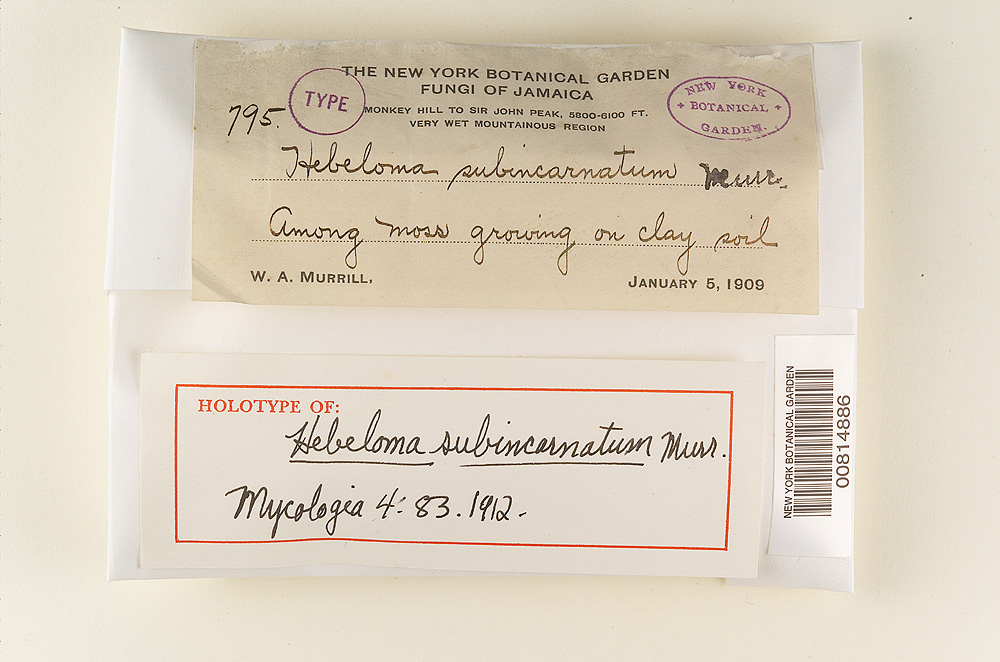 THE NEW YORK BOTANICAL GARDEN
FUNGI OF JAMAICA
MONKEY HILL TO SIR JOHN PEAK, 5800-6100 FT.
VERY WET MOUNTAINOUS REGION
795.
TYPE
NEW YORK
BOTANICAL
GARDEN.
Hebeloma subincarnatum Murr.
Among moss growing on clay soil
W. A. MURRILL,
JANUARY 5, 1909
HOLOTYPE OF:
Hebeloma subincarnatum Murr.
Mycologia 4: 83. 1912.
NEW YORK BOTANICAL GARDEN
00814886